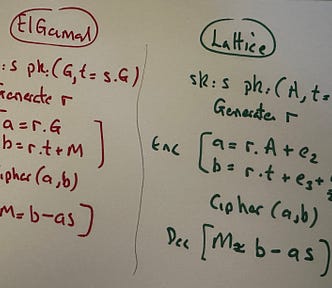 ElGamal
: s pk: (G, t = s.G)
Generate r
a = r.G
b = r.t + M
Cipher (a,b)
M = b - as
Lattice
sk: s pk: (A, t =
Generate r
Enc a = r.A + e₂
b = r.t + e₃ +
Cipher (a,b)
Dec [M ≈ b - as]